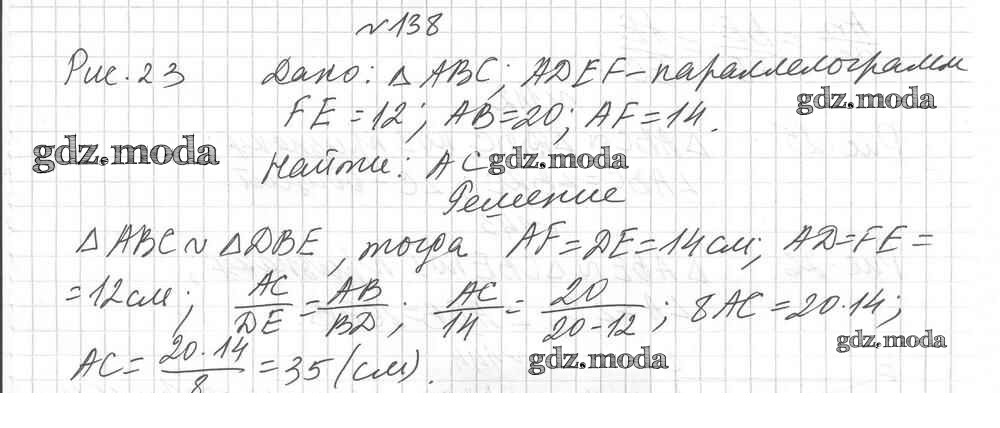 №138
Рис. 23 Дано: △ABC; ADEF – параллелограмм
gdz.moda
FE = 12; AB = 20; AF = 14.
gdz.moda
Найти: AC
gdz.moda
Решение
△ABC ~ △DBE, тогда AF = DE = 14 см; AD = FE =
= 12 см; AC/DE = AB/BD; AC/14 = 20/(20-12); 8AC = 20·14;
gdz.moda
AC = 20·14/8 = 35 (см).
gdz.moda